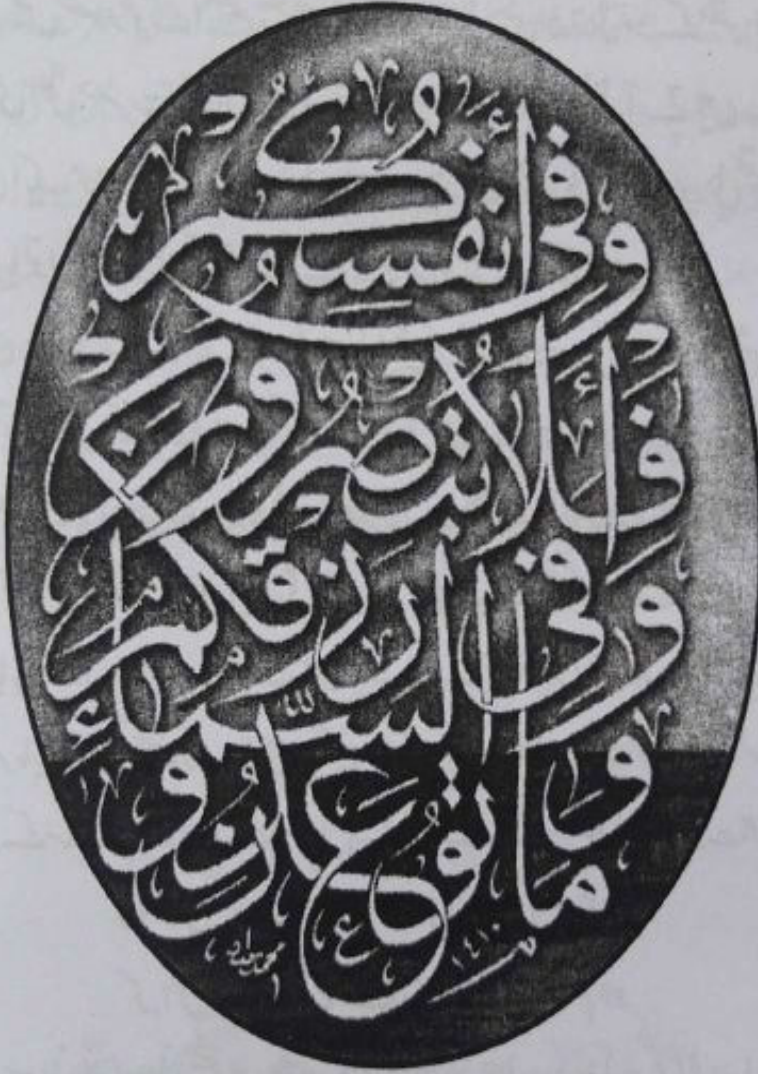 وَفِي أَنفُسِكُمْ
أَفَلَا تُبْصِرُونَ
وَفِي السَّمَاءِ رِزْقُكُمْ
وَمَا تُوعَدُونَ
١٤١٠
محمد